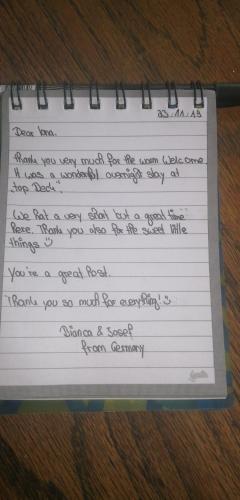 23.11.19
Dear Iona.
Thank you very much for the warm welcome.
It was a wonderful overnight stay at
"Top Deck".
We hat a very short but a great time
here. Thank you also for the sweet little
things ☺
You're a great host.
Thank you so much for everything! ☺
Bianca & Josef
from Germany